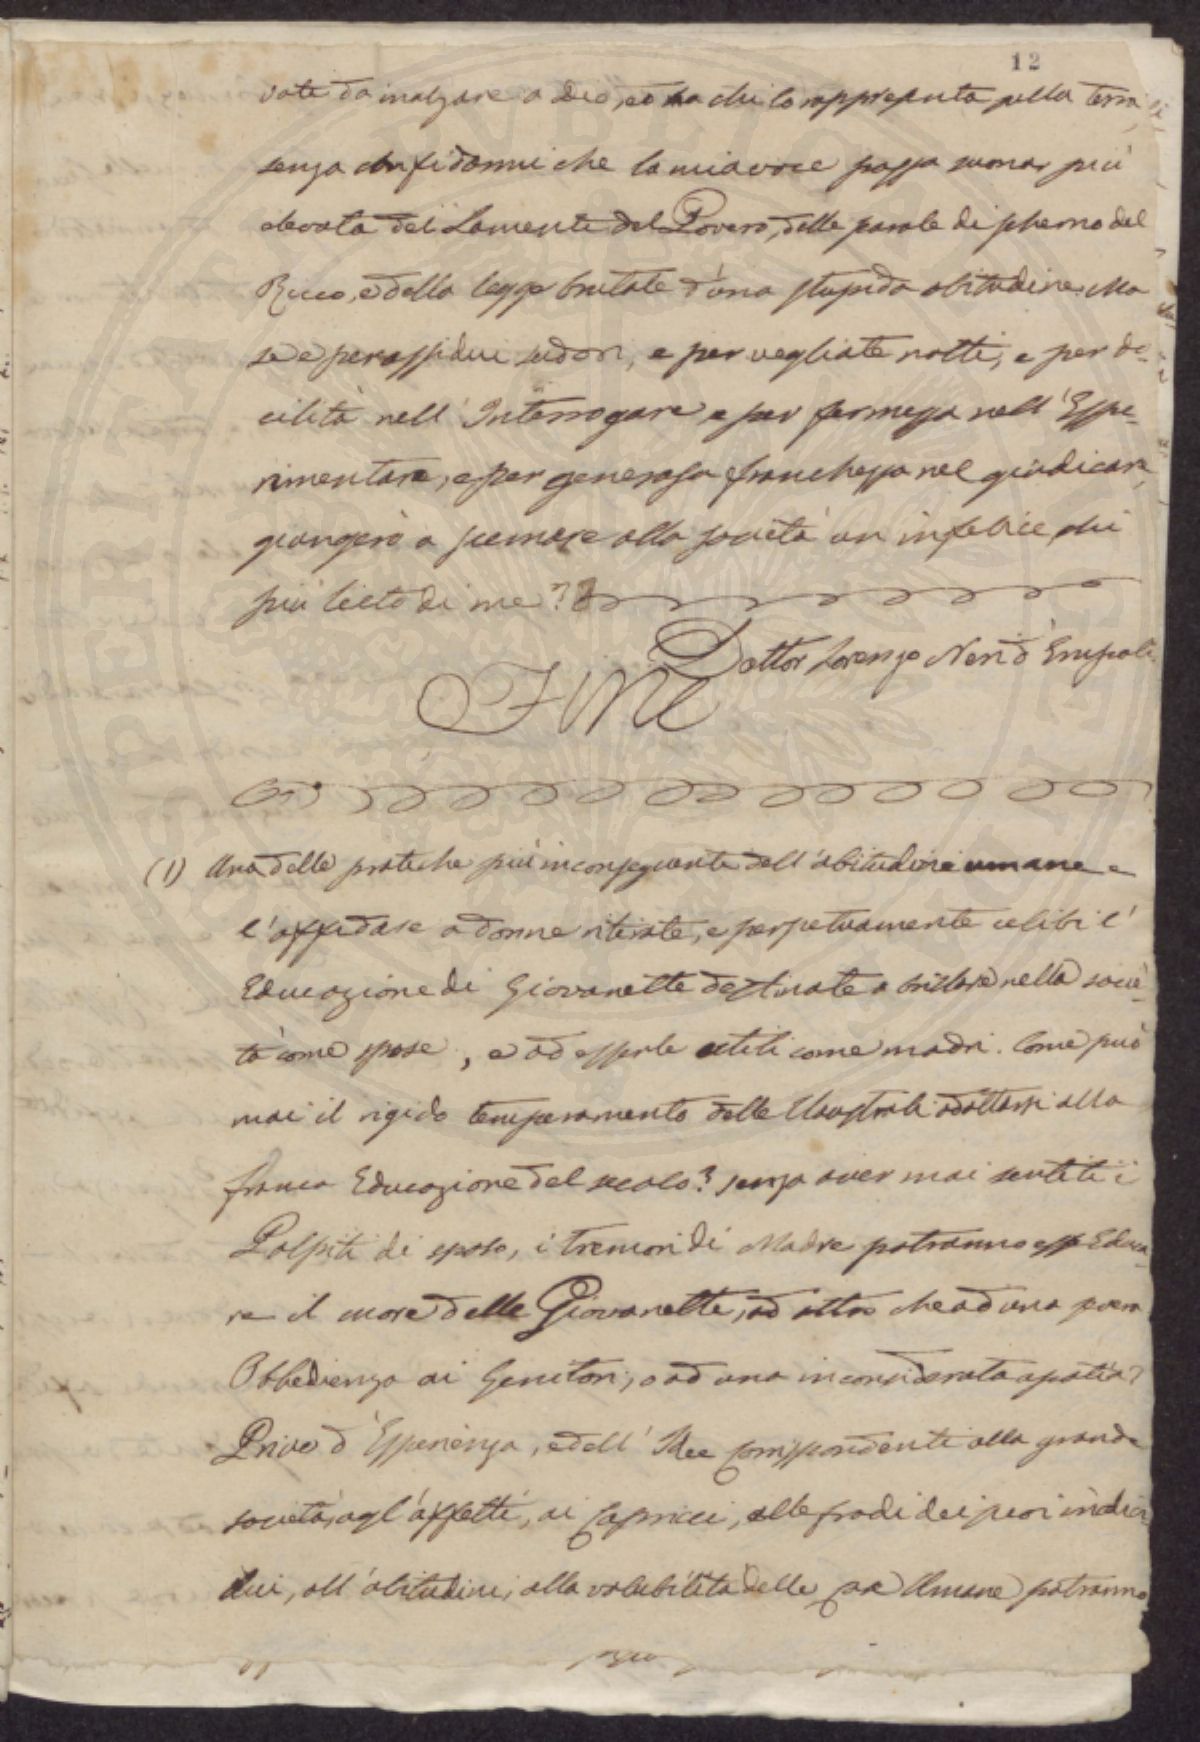 12
vate da inalzare a Dio, ed a chi lo rappresenta sulla terra
senza confidarmi che la mia voce possa suonar più
elevata dei Lamenti del Povero, delle parole di scherno del
Ricco, e della legge brutale d'una stupida abitudine. Ma
se e per assidui sudori, e per vegliate notti, e per do-
cilità nell' Interrogare e per fermezza nell' Espe-
rimentare, e per generosa franchezza nel giudicare,
giungerò a scemare alla società un infelice, chi
più lieto di me?
Dottor Lorenzo Neri d'Empoli
FINE
(1) Una delle pratiche più inconseguente dell' abitudini umane e
l'affidare a donne ritirate, e perpetuamente celibi l'
Educazione di Giovanette destinate a brillare nella socie-
tà come spose, e ad esserle utili come madri. Come può
mai il rigido temperamento delle Claustrali adattarsi alla
franca Educazione del secolo? senza aver mai sentiti i
Palpiti di sposa, i tremori di Madre potranno esse Educa-
re il cuore delle Giovanette, ad altro che ad una
Obbedienza ai Genitori, o ad una inconsiderata apatia?
Prive d'Esperienza, e dell' Idee corrispondenti alla grande
società, agl'affetti, ai capricci, alle frodi dei suoi indivi-
dui, all'abitudini, alla volubilità delle cose Umane potranno